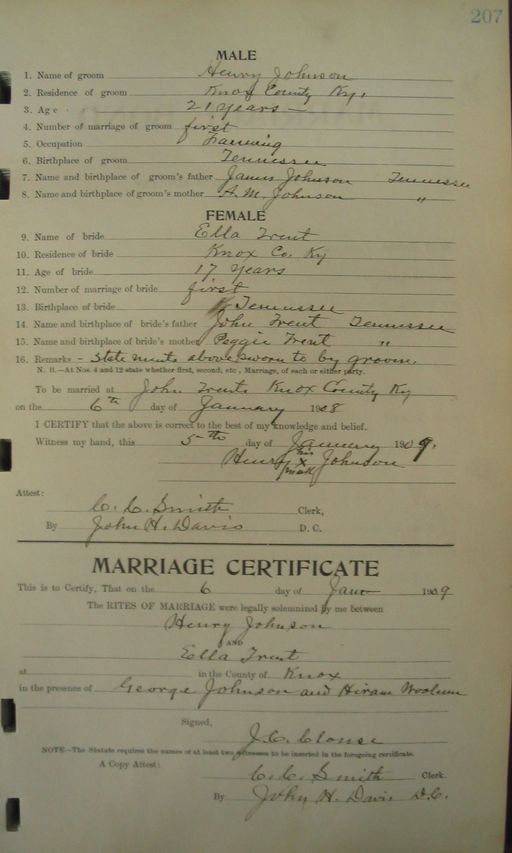 207
MALE
1. Name of groom Henry Johnson
2. Residence of groom Knox County Ky.
3. Age 21 years
4. Number of marriage of groom first
5. Occupation Farming
6. Birthplace of groom Tennessee
7. Name and birthplace of groom's father James Johnson Tennessee
8. Name and birthplace of groom's mother A. M. Johnson "
FEMALE
9. Name of bride Ella Trent
10. Residence of bride Knox Co. Ky
11. Age of bride 17 years
12. Number of marriage of bride first
13. Birthplace of bride Tennessee
14. Name and birthplace of bride's father John Trent Tennessee
15. Name and birthplace of bride's mother Peggie Trent "
16. Remarks - Statements above sworn to by groom.
N. B.—At Nos. 4 and 12 state whether first, second, etc., Marriage, of each or either party.
To be married at John Trents Knox County Ky
on the 6th day of January 1908
I CERTIFY that the above is correct to the best of my knowledge and belief.
Witness my hand, this 5th day of January 1909.
his
Henry x Johnson
mark
Attest:
C. C. Smith Clerk,
By John H. Davis D. C.
MARRIAGE CERTIFICATE
This is to Certify, That on the 6 day of Jan 1909
The RITES OF MARRIAGE were legally solemnized by me between
Henry Johnson
AND
Ella Trent
at in the County of Knox
in the presence of George Johnson and Hiram Woolum
Signed,
J. C. Clouse
NOTE—The Statute requires the names of at least two witnesses to be inserted in the foregoing certificate.
A Copy Attest:
C. C. Smith Clerk.
By John H. Davis D.C.